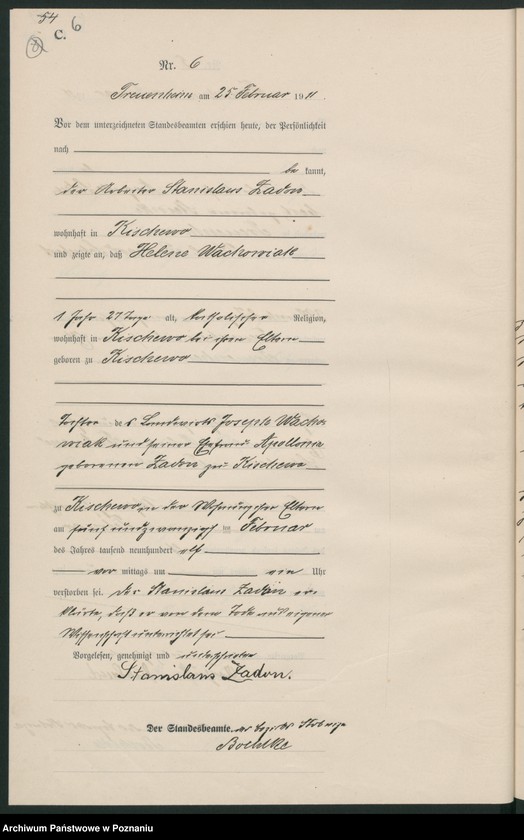 54
C. 6
8
Nr. 6
Treuenheim am 25 Februar 1911.
Vor dem unterzeichneten Standesbeamten erschien heute, der Persönlichkeit
nach
be kannt,
der Arbeiter Stanislaus Zadon
wohnhaft in Kischewo
und zeigte an, daß Helene Wachowiak
1 Jahr 27 Tage alt, katholischer Religion,
wohnhaft in Kischewo bei ihren Eltern
geboren zu Kischewo
Tochter des Landwirts Joseph Wacho
wiak und seiner Ehefrau Apollonia
geborenen Zadon zu Kischewo
zu Kischewo in der Wohnung ihrer Eltern
am fünf und zwanzigsten Februar
des Jahres tausend neunhundert elf
vor mittags um ein Uhr
verstorben sei. Der Stanislaus Zadon er
klärte, daß er von dem Tode aus eigener
Wissenschaft unterrichtet sei
Vorgelesen, genehmigt und unterschrieben
Stanislaus Zadon.
Der Standesbeamte.
Boehlke
Archiwum Państwowe w Poznaniu